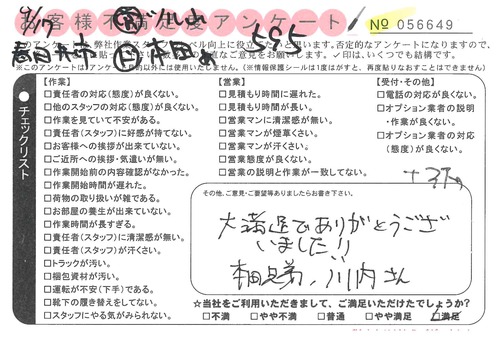 お客様不満足度アンケート
№ 056649
9/17
春日井市
595
このアンケートは、弊社作業スタッフのレベル向上に役立てたいと思います。否定的なアンケートになりますので、
お願いします。✓印は、いくつでも結構です。
※このアンケートは 以外には使用いたしません。(※情報保護シールは1度はがすと、再度貼りなおすことはできません)
チェックリスト
【作業】
□責任者の対応(態度)が良くない。
□他のスタッフの対応(態度)が良くない。
□作業を見ていて不安がある。
□責任者(スタッフ)に好感が持てない。
□お客様への挨拶が出来ていない。
□ご近所への挨拶・気遣いが無い。
□作業開始前の内容確認がなかった。
□作業開始時間が遅れた。
□荷物の取り扱いが雑である。
□お部屋の養生が出来ていない。
□作業時間が長すぎる。
□責任者(スタッフ)に清潔感が無い。
□責任者(スタッフ)が汗くさい。
□トラックが汚い。
□梱包資材が汚い。
□運転が不安(下手)である。
□靴下の履き替えをしてない。
□スタッフにやる気がみられない。
【営業】
□見積もり時間に遅れた。
□見積もり時間が長い。
□営業マンに清潔感が無い。
□営業マンが煙草くさい。
□営業マンが汗くさい。
□営業態度が良くない。
□営業の説明と作業が一致してない。
【受付・その他】
□電話の対応が良くない。
□オプション業者の説明
・作業が良くない。
□オプション業者の対応
(態度)が良くない。
その他、ご意見・ご要望等ありましたらお書き下さい。
大満足でありがとうござ
いました!!
本田兄弟、川内さん
☆当社をご利用いただきまして、ご満足いただけたでしょうか?
□不満 □やや不満 □普通 □やや満足 ☑満足